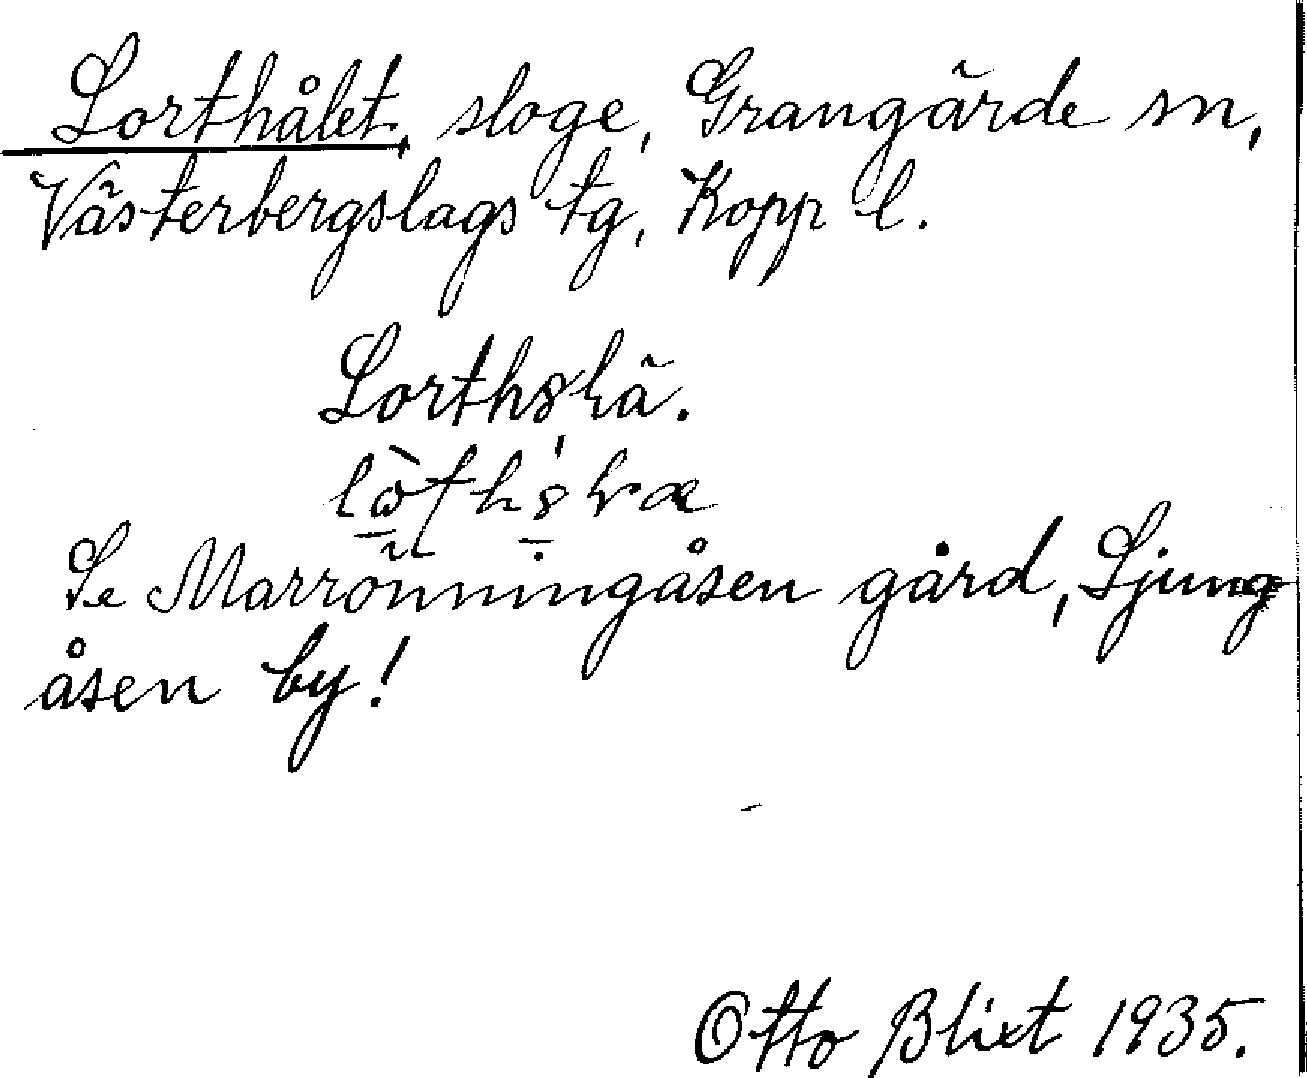 Lorthålet, sloge, Grangärde sn,
Västerbergslags tg, Kopp l.
Se Marrönningåsen gård, Ljung
åsen by!
Otto Blixt 1935.